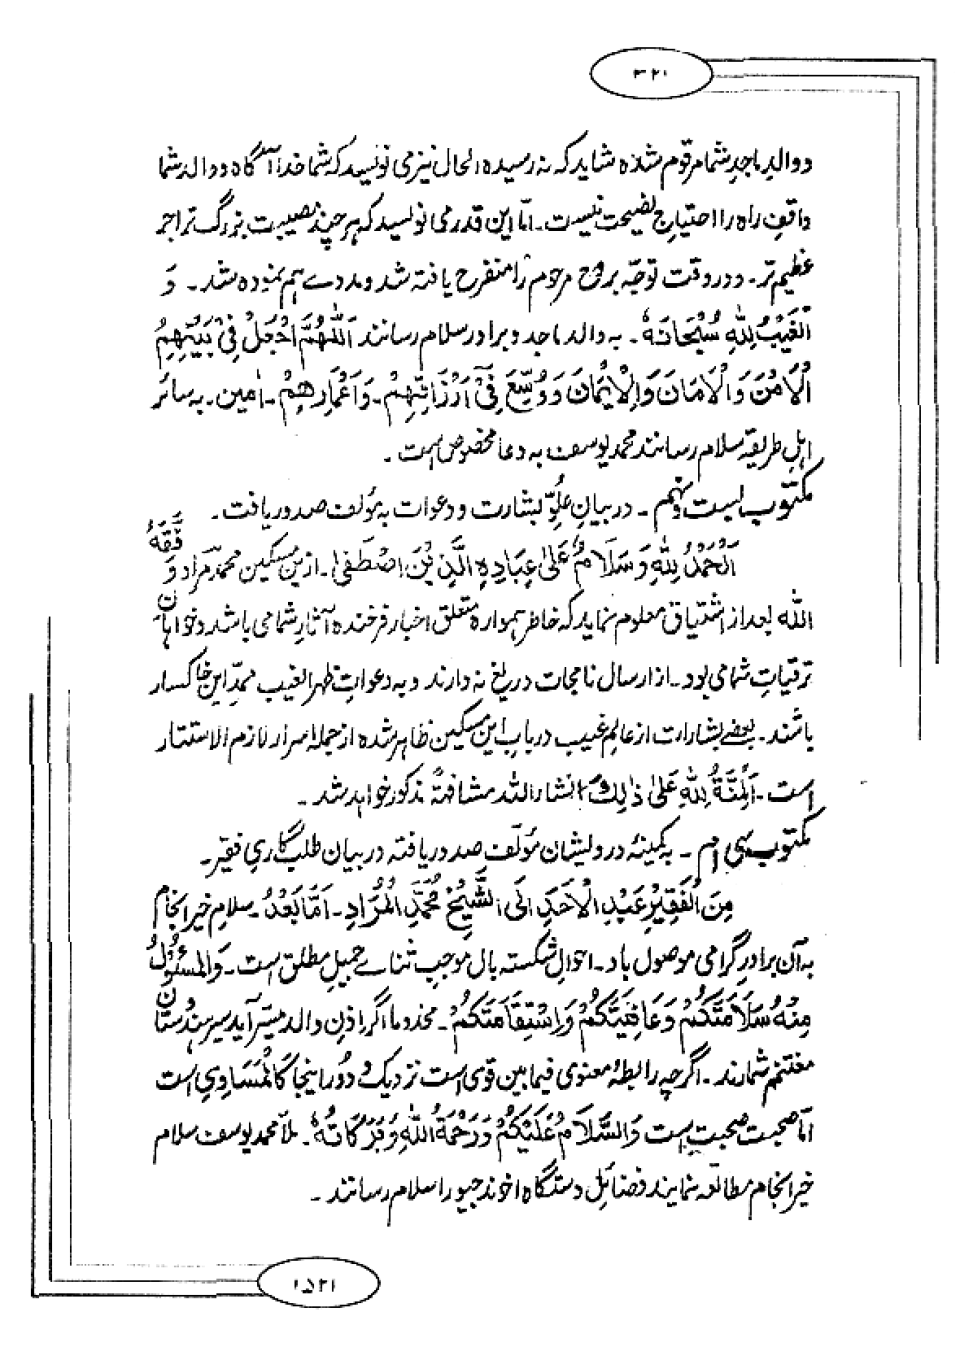 ۳۲۱
دوالدِ ماجدِ شما مرقوم شده شاید که نه رسیده الحال نیز می نویسد که شما خدا آگاه و والد شما
واقفِ راه را احتیاجِ نصیحت نیست۔ امّا این قدر می نویسد که هر چند مصیبت بزرگ تر اجر
عظیم تر۔ ودر وقت توجّه بروح مرحوم را متفرح یافته شد و مددے هم نموده شد۔ وَ
الْغَیْبُ لِلّٰهِ سُبْحَانَهٗ۔ به والد ماجد و برادر سلام رسانند اَللّٰهُمَّ اجْعَلْ فِیْ بَیْتِهِمُ
الْاَمْنَ وَالْاَمَانَ وَالْاِیْمَانَ وَوَسِّعَ فِیْ اَرْزَاقِهِمْ۔ وَاَعْمَارِهِمْ۔ اٰمین۔ به سائر
اہلِ طریقه سلام رسانند محمد یوسف به دعا مخصوص است۔
مکتوب بست و نهم ۔ در بیانِ علوِّ بشارت و دعوات به مؤلف صدور یافت۔
اَلْحَمْدُ لِلّٰهِ وَسَلَامٌ عَلٰی عِبَادِهِ الَّذِیْنَ اصْطَفٰی۔ ازین مسکین محمد مراد وَفَّقَهُ
الله بعد از اشتیاق معلوم نماید که خاطر همواره متعلق اخبار فرخنده آثارِ شما می باشد و خواهان
ترقیاتِ شما می بود۔ از ارسال نامجات دریغ نه دارند و به دعواتِ ظهر الغیب ممدّ این خاکسار
باشند۔ بعضے بشارات از عالمِ غیب در بابِ این مسکین ظاہر شده از جمله اسرار لازم الاستتار
است۔ اَلْمِنَّةُ لِلّٰهِ عَلٰی ذٰلِكَ وَ انشاء الله مشافهةً مذکور خواهد شد۔
مکتوب سی ام ۔ به کمینۀ درویشان مؤلف صدور یافته در بیان طلب گاریِ فقیر۔
مِنَ الْفَقِیْرِ عَبْدِ الْاَحَدِ اِلَی الشَّیْخِ مُحَمَّدِ الْمُرَادِ۔ اَمَّا بَعْدُ۔ سلامِ خیر انجام
به آن برادرِ گرامی موصول باد۔ احوالِ شکسته بال موجبِ ثناے جمیلِ مطلق است۔ وَالْمَسْئُوْلُ
مِنْهُ سَلَامَتَکُمْ وَعَافِیَتَکُمْ وَاسْتِقَامَتَکُمْ۔ مخدوما اگر اذنِ والد میسّر آید سیرِ ہندوستان
مغتنم شمارند۔ اگرچه رابطۀ معنوی فیما بین قوی است نزدیک و دُور اینجا کَالْمُسَاوِی است
امّا صحبت صحبت است وَالسَّلَامُ عَلَیْکُمْ وَرَحْمَةُ اللهِ وَبَرَکَاتُهٗ۔ ملّا محمد یوسف سلام
خیر انجام مطالعه نمایند فضائل دستگاه اخوند جیو را سلام رسانند۔
۱۵۲۱